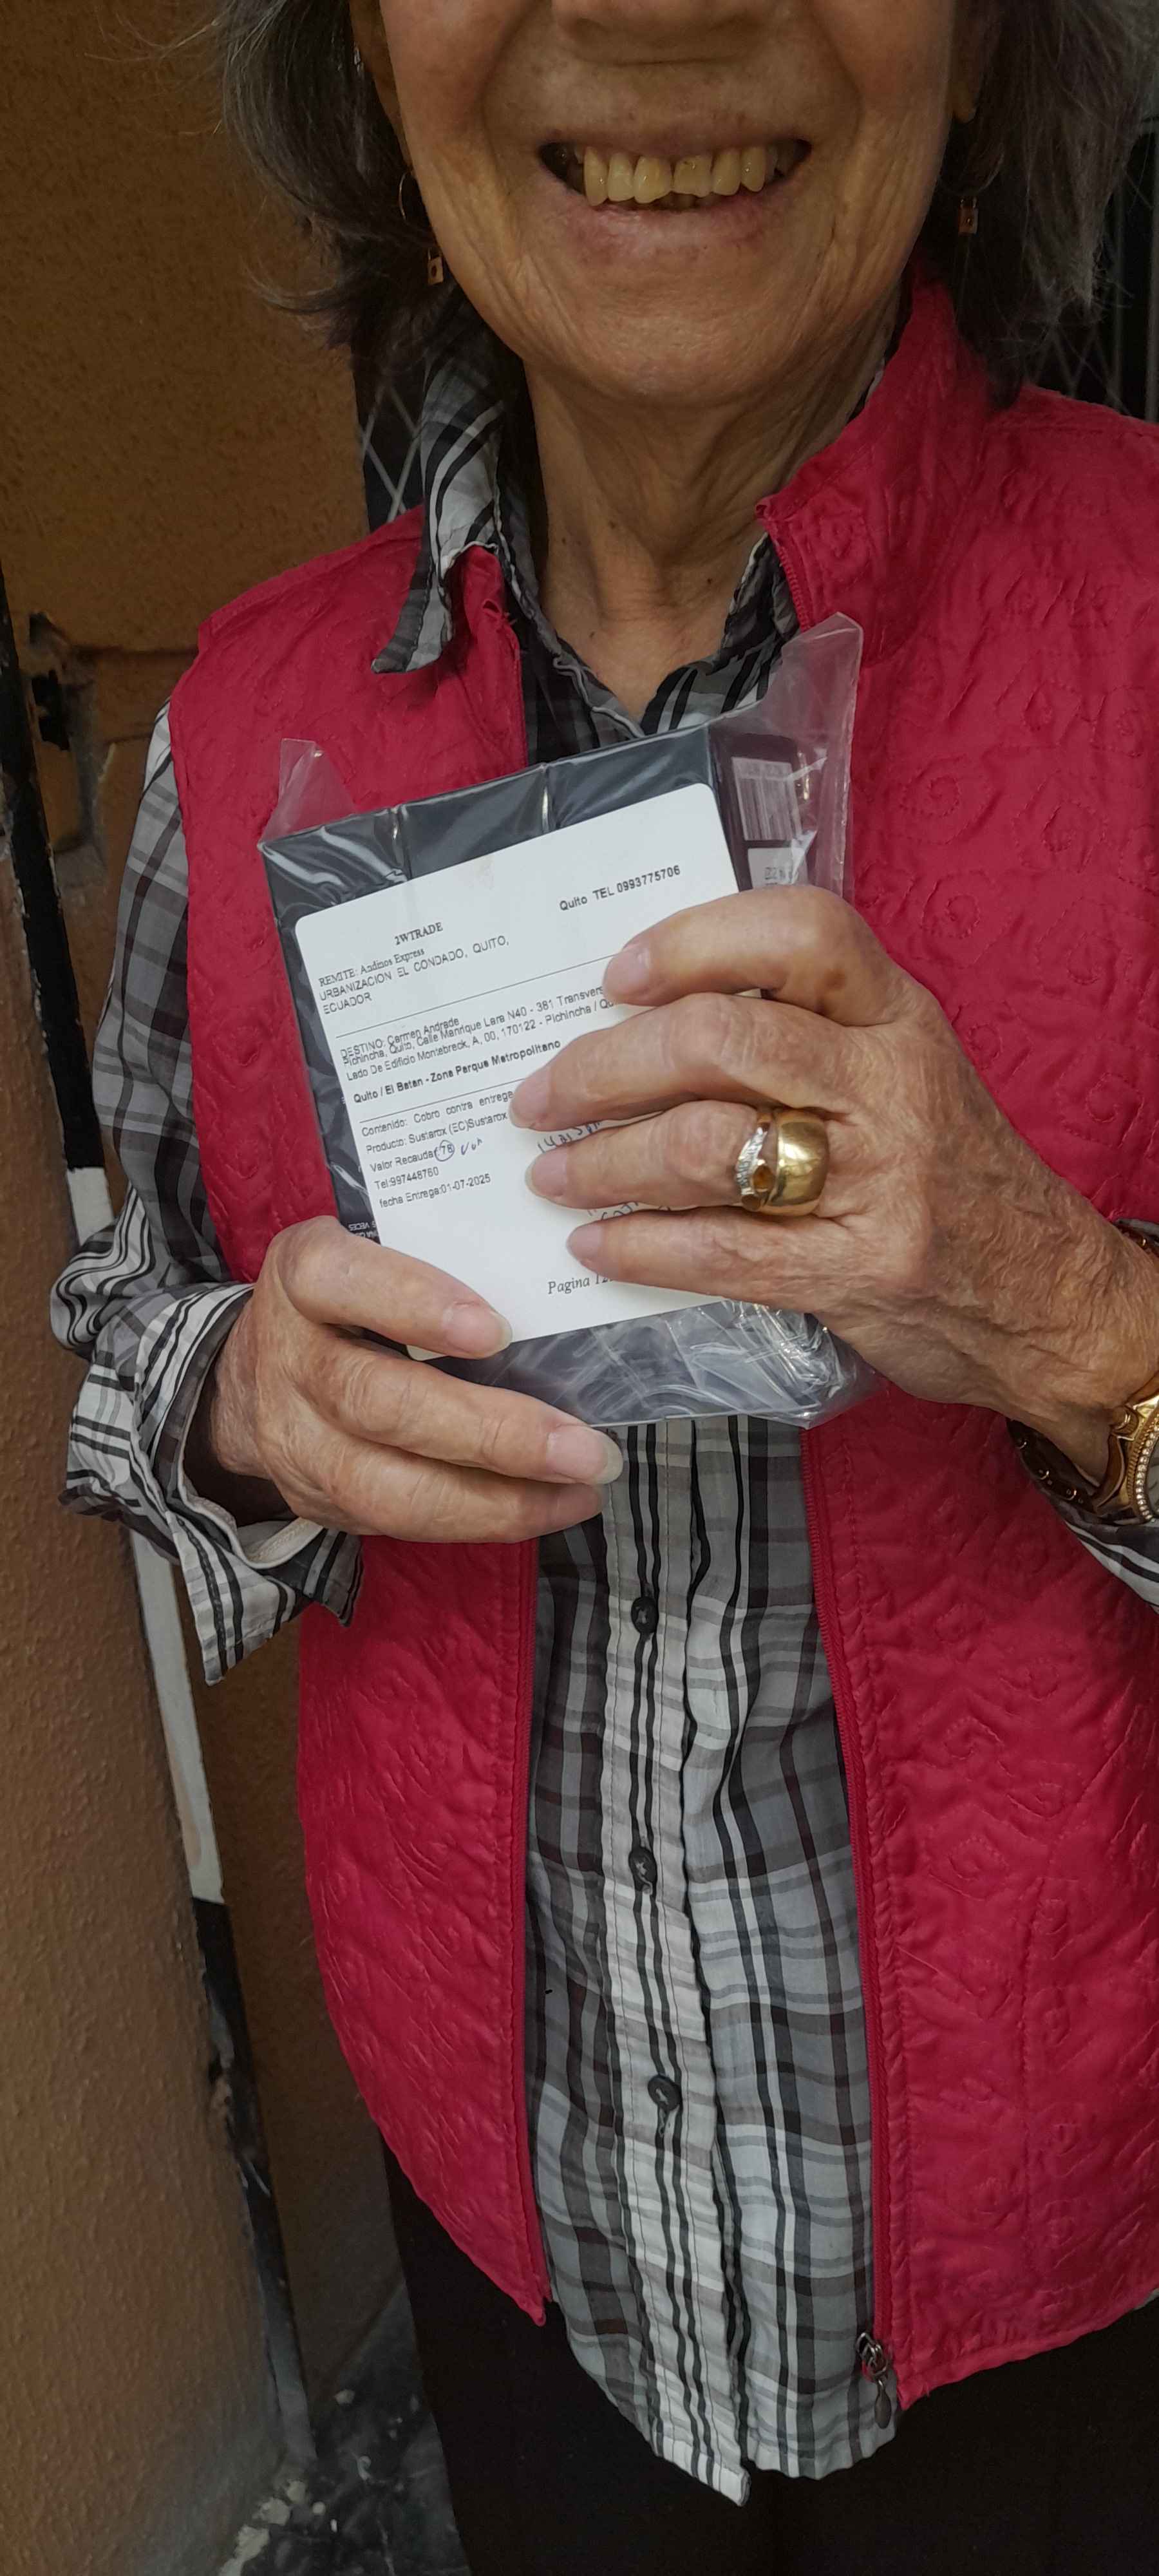 Quito TEL 0993775706
2WTRADE
REMITE: Andinos Express
URBANIZACION EL CONDADO, QUITO,
ECUADOR
DESTINO: Carmen Andrade
Pichincha, Quito, Calle Manrique Lara N40 - 381 Transvers
Lado De Edificio Montebreck, A, 00, 170122 - Pichincha / Qu
Quito / El Batan - Zona Parque Metropolitano
Contenido: Cobro contra entrega
Producto: Sustarox (EC)Sustarox
Valor Recaudar: 78
Tel:997448760
fecha Entrega:01-07-2025
Pagina
VECES